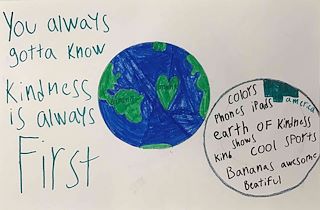 You always
gotta know
Kindness
is always
First
colors
america
Phones iPads
earth OF Kindness
shows
Kind
COOL SPOrts
Bananas awesome
Beatiful